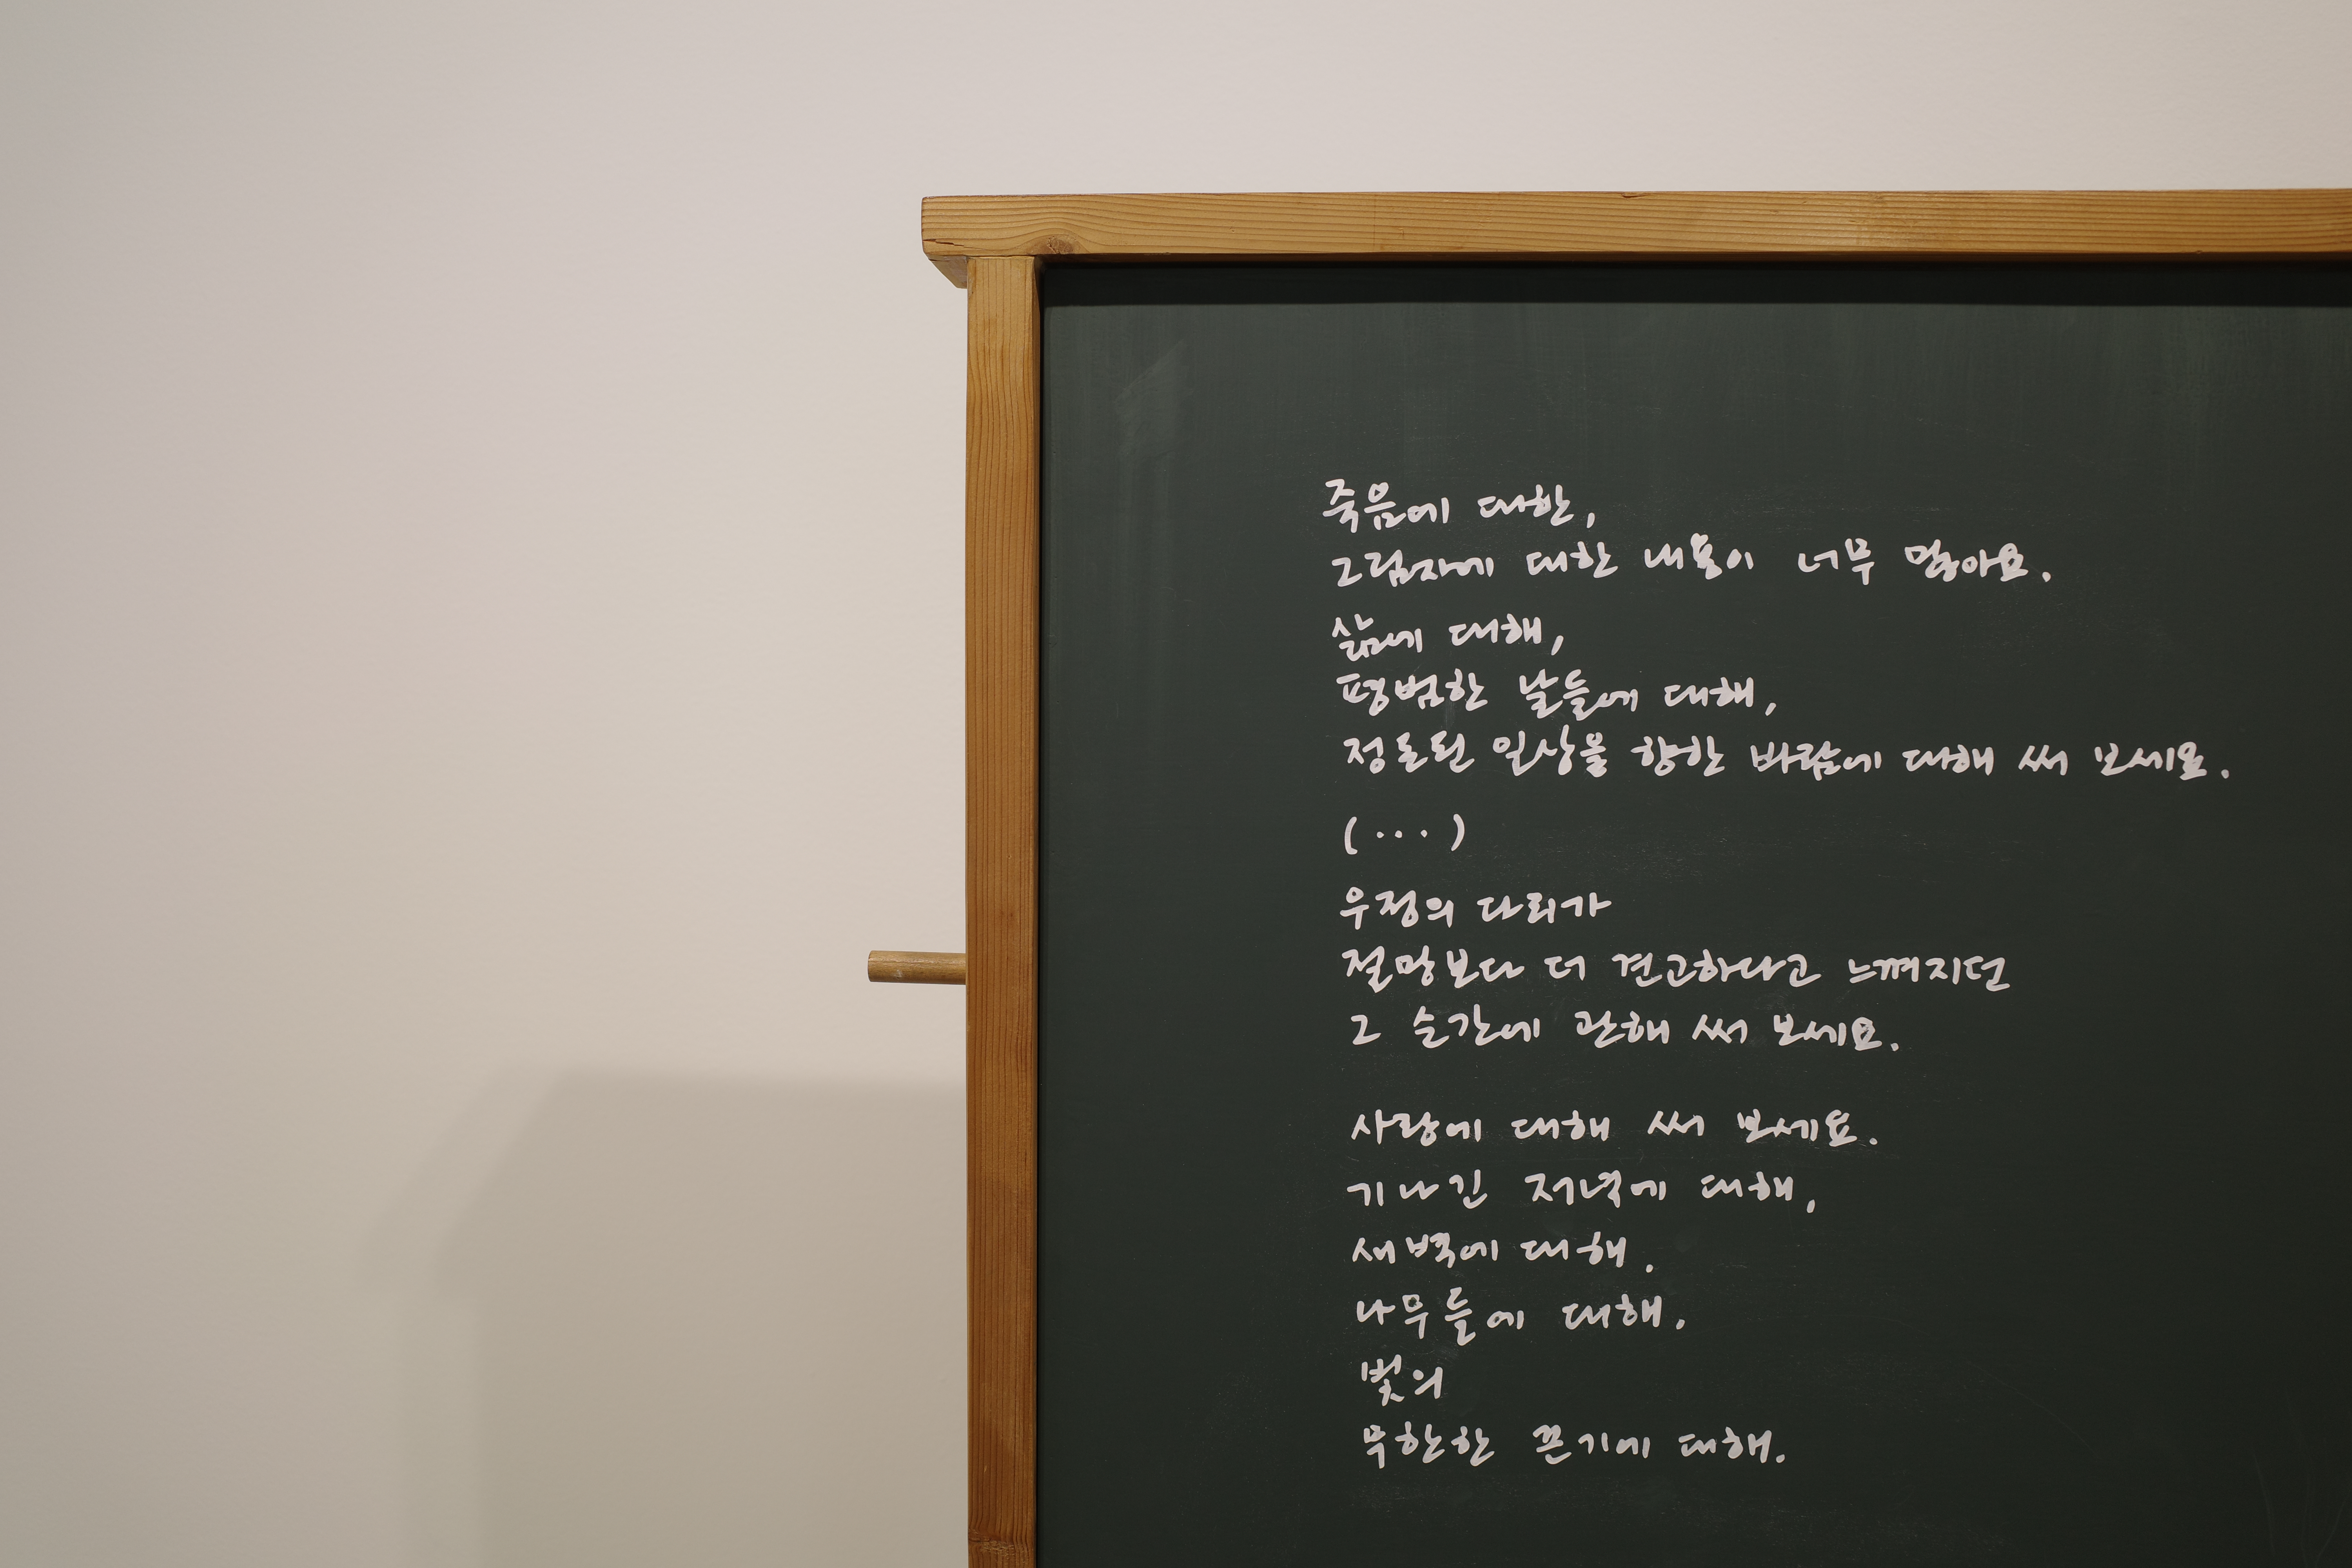 죽음에 대한,
그림자에 대한 내용이 너무 많아요.
삶에 대해,
평범한 날들에 대해,
정돈된 일상을 향한 바람에 대해 써 보세요.
(···)
우정의 다리가
절망보다 더 견고하다고 느껴지던
그 순간에 관해 써 보세요.
사랑에 대해 써 보세요.
기나긴 저녁에 대해,
새벽에 대해.
나무들에 대해,
빛의
무한한 끈기에 대해.